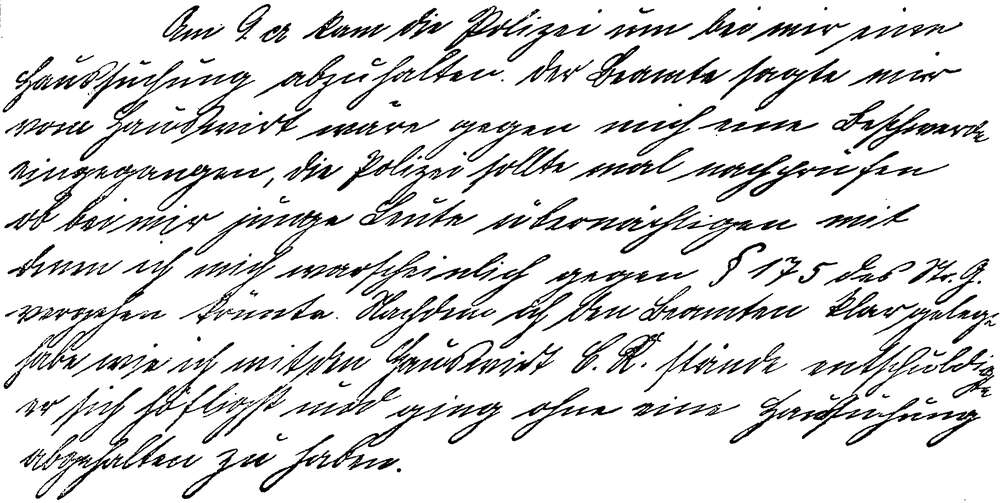 Am 9 cr kam die Polizei um bei mir eine
Haussuchung abzuhalten. Der Beamte sagte mir
vom Hauswirt wäre gegen mich eine Beschwerde
eingegangen, die Polizei sollte mal nachprüfen
ob bei mir junge Leute übernachtigen mit
denen ich mich warscheinlich gegen § 175 des Str. G.
vergehen könnte. Nachdem ich den Beamten klar gelegt
habe wie ich mit den Hauswirt C. R. stände entschuldigte
er sich höflichst und ging ohne eine Haussuchung
abgehalten zu haben.